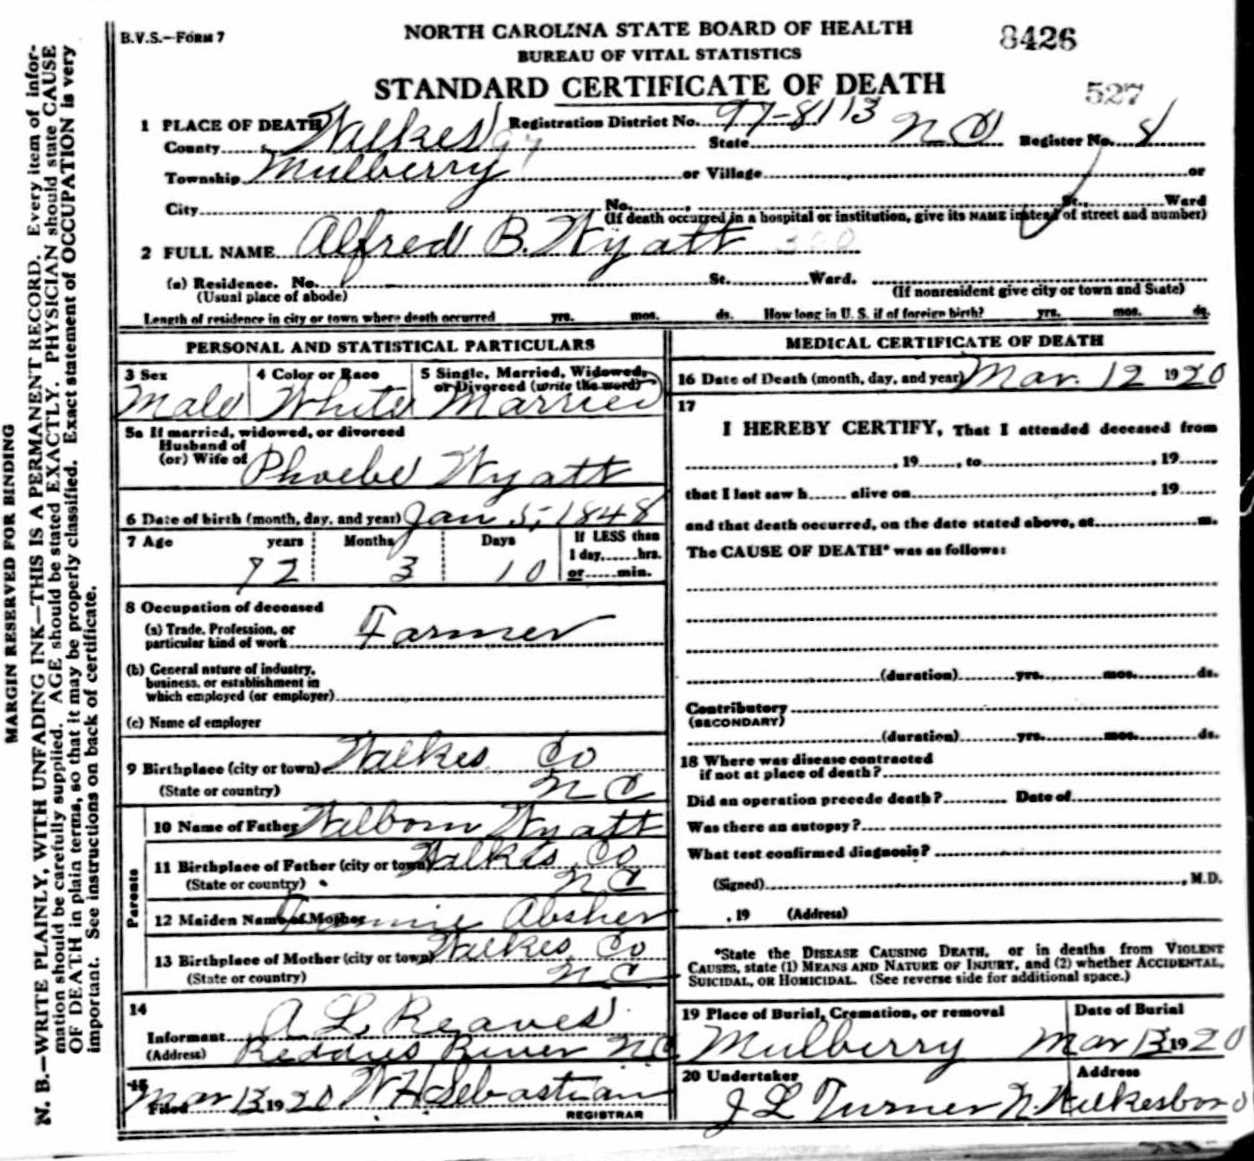 B.V.S.—FORM 7
NORTH CAROLINA STATE BOARD OF HEALTH
BUREAU OF VITAL STATISTICS
STANDARD CERTIFICATE OF DEATH
8426
527
1 PLACE OF DEATH
Registration District No. 97-8113
County Wilkes 97 State N C Register No. 8
Township Mulberry or Village or
City No. St., Ward
(If death occurred in a hospital or institution, give its NAME instead of street and number)
2 FULL NAME Alfred B. Wyatt
(a) Residence. No. St. Ward.
(Usual place of abode) (If nonresident give city or town and State)
Length of residence in city or town where death occurred yrs. mos. ds. How long in U. S. if of foreign birth? yrs. mos. ds.
PERSONAL AND STATISTICAL PARTICULARS
3 Sex 4 Color or Race 5 Single, Married, Widowed,
or Divorced (write the word)
Male White Married
5a If married, widowed, or divorced
Husband of
(or) Wife of Phoebe Wyatt
6 Date of birth (month, day, and year) Jan 5, 1848
7 Age years Months Days If LESS than
1 day, hrs.
72 3 10 or min.
8 Occupation of deceased
(a) Trade, Profession, or
particular kind of work Farmer
(b) General nature of industry,
business, or establishment in
which employed (or employer)
(c) Name of employer
9 Birthplace (city or town) Wilkes Co
(State or country) N C
Parents
10 Name of Father Wilborn Wyatt
11 Birthplace of Father (city or town) Wilkes Co
(State or country) N C
12 Maiden Name of Mother Absher
13 Birthplace of Mother (city or town) Wilkes Co
(State or country) N C
14
Informant A L Reaves
(Address) Reddies River N C
15
Filed Mar 13 1920 W H Sebastian
REGISTRAR
MEDICAL CERTIFICATE OF DEATH
16 Date of Death (month, day, and year) Mar. 12 1920
17
I HEREBY CERTIFY, That I attended deceased from
, 19 , to , 19
that I last saw h alive on , 19
and that death occurred, on the date stated above, at m.
The CAUSE OF DEATH* was as follows:
(duration) yrs. mos. ds.
Contributory
(SECONDARY)
(duration) yrs. mos. ds.
18 Where was disease contracted
if not at place of death?
Did an operation precede death? Date of
Was there an autopsy?
What test confirmed diagnosis?
(Signed) , M.D.
, 19 (Address)
*State the DISEASE CAUSING DEATH, or in deaths from VIOLENT
CAUSES, state (1) MEANS AND NATURE OF INJURY, and (2) whether ACCIDENTAL,
SUICIDAL, OR HOMICIDAL. (See reverse side for additional space.)
19 Place of Burial, Cremation, or removal Date of Burial
Mulberry Mar 13 1920
20 Undertaker Address
J L Turner N. Wilkesboro
MARGIN RESERVED FOR BINDING
N. B.—WRITE PLAINLY, WITH UNFADING INK—THIS IS A PERMANENT RECORD. Every item of infor-
mation should be carefully supplied. AGE should be stated EXACTLY. PHYSICIAN should state CAUSE
OF DEATH in plain terms, so that it may be properly classified. Exact statement of OCCUPATION is very
important. See instructions on back of certificate.